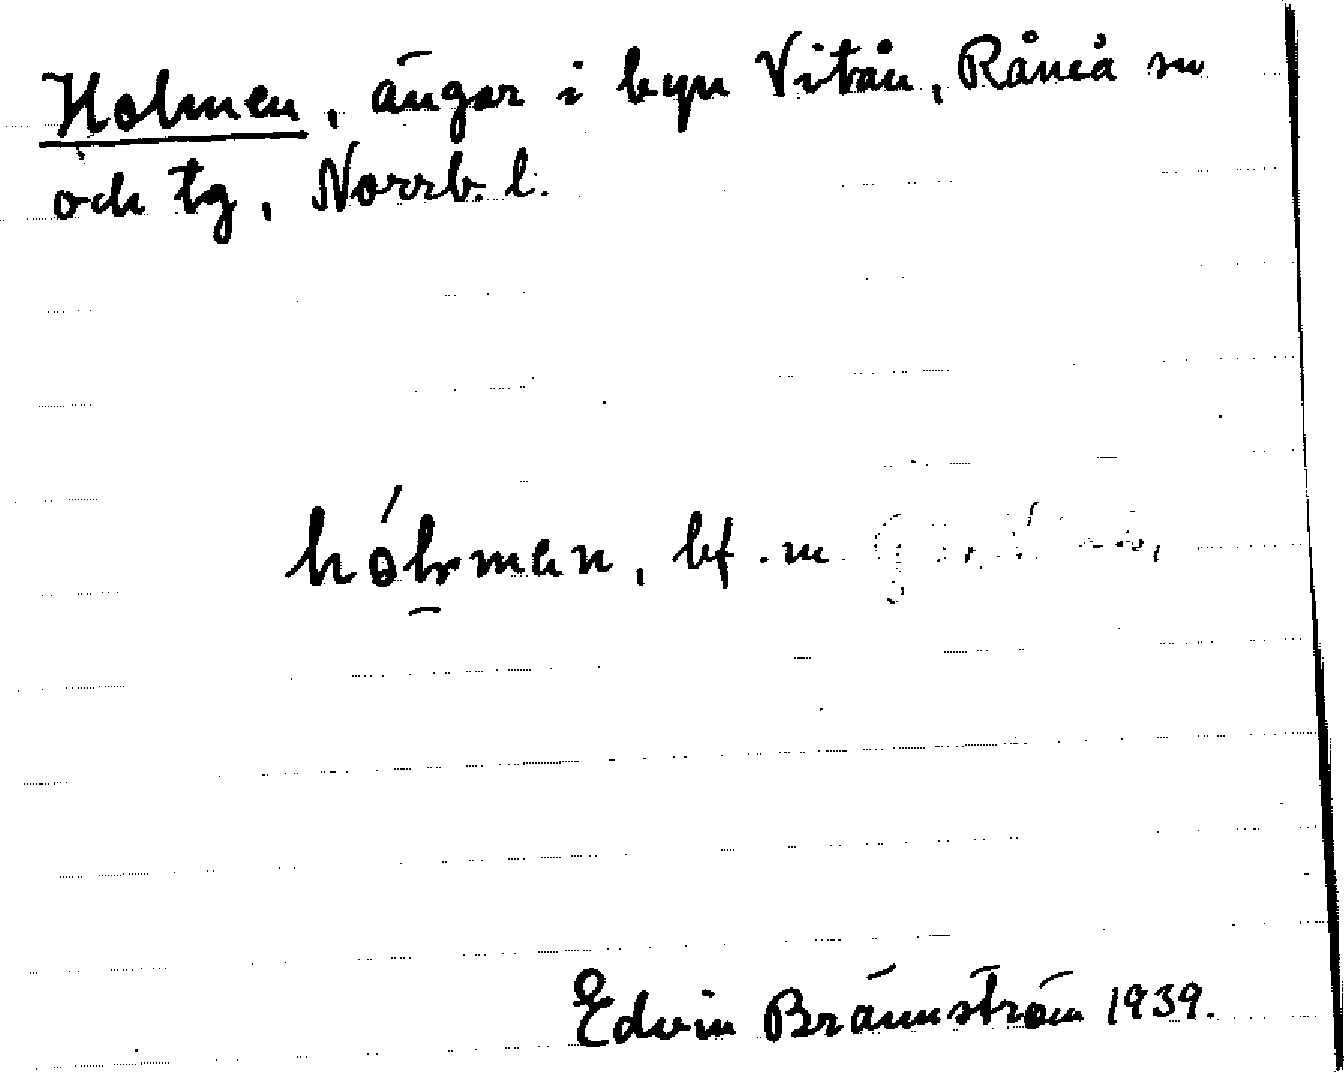 Holmen, ängar i byn Vitån, Råneå sn
och tg, Norrb. l.
hólmen, bf. m
Edvin Brännström 1939.